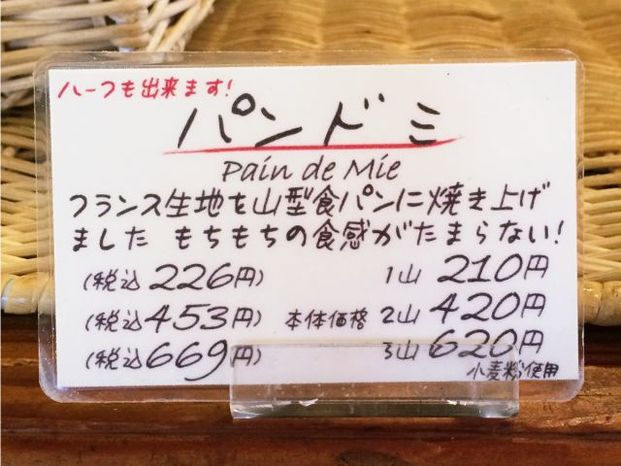 ハーフも出来ます!
パンドミ
Pain de Mie
フランス生地を山型食パンに焼き上げ
ました もちもちの食感がたまらない!
(税込226円) 1山 210円
(税込453円) 本体価格 2山 420円
(税込669円) 3山 620円
小麦粉使用